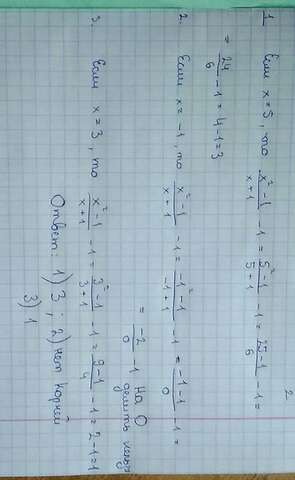 2
1 Если x=5, то x²-1/x+1 -1 = 5²-1/5+1 -1 = 25-1/6 -1 =
= 24/6 -1 = 4-1 = 3
2. Если x=-1, то x²-1/x+1 -1 = -1²-1/-1+1 -1 = -1-1/0 -1 =
= -2/0 -1 На 0 делить нельз
3. Если x=3, то x²-1/x+1 -1 = 3²-1/3+1 -1 = 9-1/4 -1 = 2-1=1
Ответ: 1) 3 ; 2) нет корней
3) 1